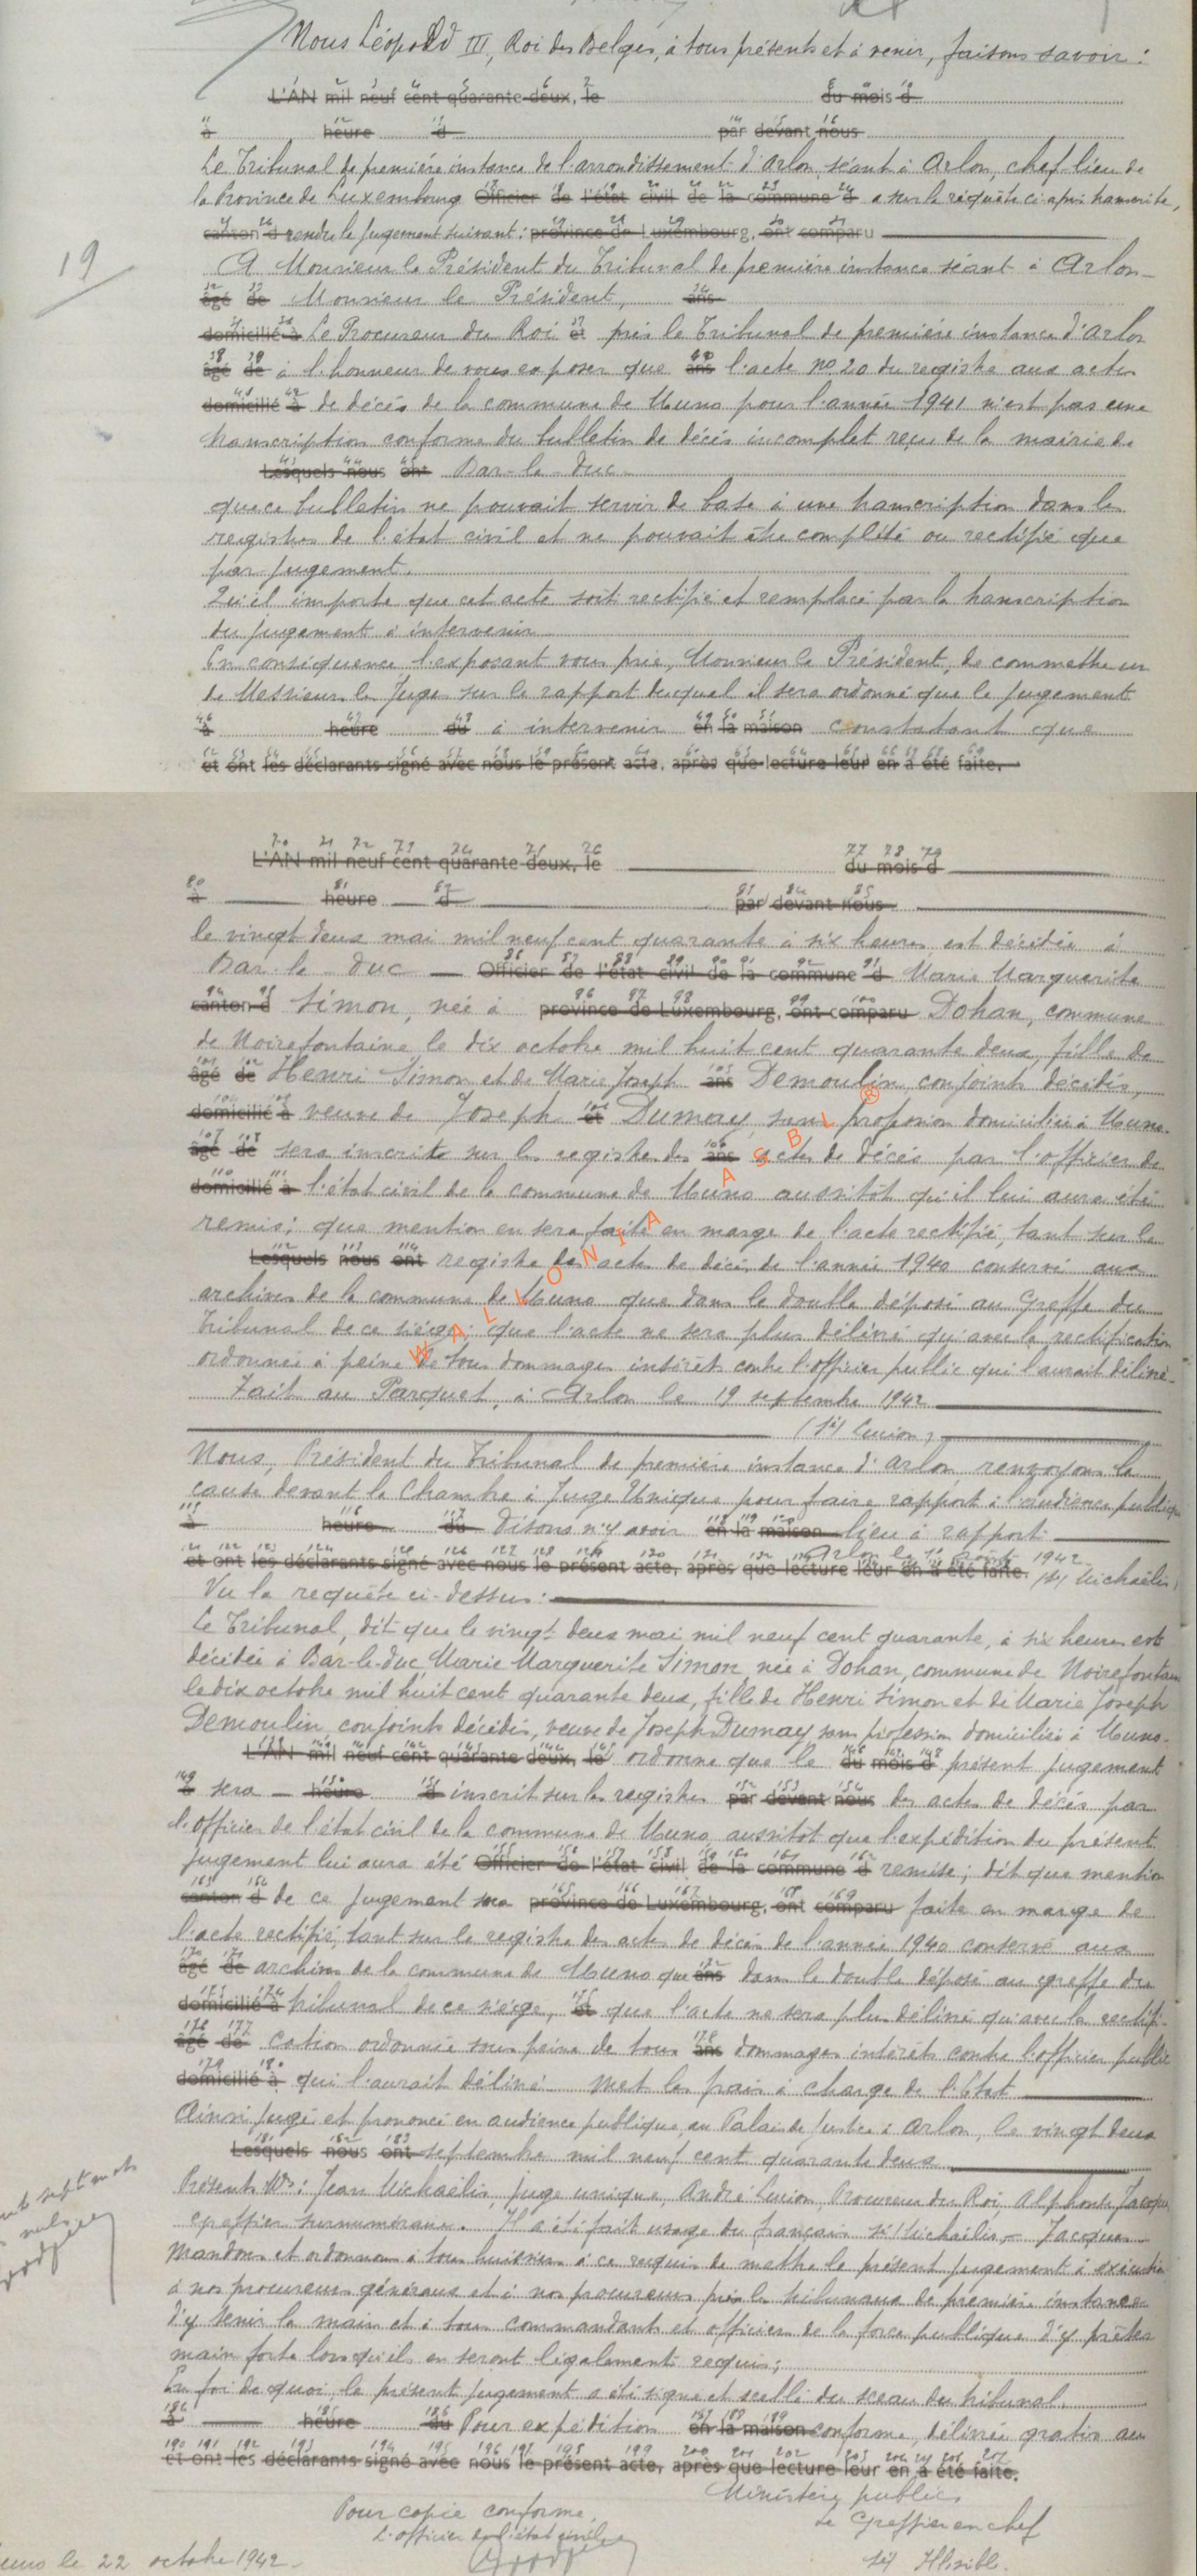 Nous Léopold III, Roi des Belges, à tous présents et à venir, faisons savoir :
L'AN mil neuf cent quarante-deux, le du mois d
à heure d par devant nous
Le Tribunal de première instance de l'arrondissement d'Arlon, séant à Arlon, chef lieu de
la Province de Luxembourg Officier de l'état civil de la commune d a sur la requête ci-après transcrite,
canton d rendu le jugement suivant : province de Luxembourg, ont comparu
19
A Monsieur le Président du Tribunal de première instance séant à Arlon
âgé de Monsieur le Président, ans
domicilié à Le Procureur du Roi et près le Tribunal de première instance d'Arlon
âgé de à l'honneur de vous exposer que ans l'acte no 20 du registre aux actes
domicilié à de décès de la commune de Muno pour l'année 1941 n'est pas une
transcription conforme du bulletin de décès incomplet reçu de la mairie de
Lesquels nous ont Bar-le-Duc
que ce bulletin ne pouvait servir de base à une transcription dans les
registres de l'état civil et ne pouvait être complété ou rectifié que
par jugement.
Qu'il importe que cet acte soit rectifié et remplacé par la transcription
du jugement à intervenir
En conséquence l'exposant vous prie, Monsieur le Président, de commettre un
de Messieurs les Juges sur le rapport duquel il sera ordonné que le jugement
à heure du à intervenir en la maison constatant que
et ont les déclarants signé avec nous le présent acte, après que lecture leur en a été faite.
L'AN mil neuf cent quarante-deux, le du mois d
à heure d par devant nous
le vingt deux mai mil neuf cent quarante à six heures est décédée à
Bar le Duc Officier de l'état civil de la commune d Marie Marguerite
canton d Simon, née à province de Luxembourg, ont comparu Dohan, commune
de Noirefontaine le dix octobre mil huit cent quarante deux, fille de
âgé de Henri Simon et de Marie Joseph ans Demoulin, conjoints décédés,
domicilié à veuve de Joseph et Dumay, sans profession domiciliée à Muno.
âgé de sera inscrite sur les registres des ans actes de décès par l'officier de
domicilié à l'état civil de la commune de Muno aussitôt qu'il lui aura été
remis ; que mention en sera faite en marge de l'acte rectifié, tant sur le
Lesquels nous ont registre des actes de décès de l'année 1940 conservé aux
archives de la commune de Muno que dans le double déposé au Greffe du
Tribunal de ce siège ; que l'acte ne sera plus délivré qu'avec la rectification
ordonnée à peine de tous dommages intérêts contre l'officier public qui l'aurait délivré.
Fait au Parquet, à Arlon le 19 septembre 1942
(sé) Lucion,
WALLONIA ASBL ®
Nous, Président du Tribunal de première instance d'Arlon, renvoyons la
cause devant la Chambre à Juge Unique pour faire rapport à l'audience publique
à heure du Disons n'y avoir en la maison lieu à rapport
Arlon le 1942
et ont les déclarants signé avec nous le présent acte, après que lecture leur en a été faite. (sé) Michaëlis,
Vu la requête ci-dessus :
Le Tribunal, dit que le vingt-deux mai mil neuf cent quarante, à six heures est
décédée à Bar-le-Duc, Marie Marguerite Simon, née à Dohan, commune de Noirefontaine
le dix octobre mil huit cent quarante deux, fille de Henri Simon et de Marie Joseph
Demoulin conjoints décédés, veuve de Joseph Dumay, sans profession domiciliée à Muno.
L'AN mil neuf cent quarante deux, le ordonne que le du mois d présent jugement
à sera heure d inscrit sur les registres par devant nous des actes de décès par
l'officier de l'état civil de la commune de Muno, aussitôt que l'expédition du présent
jugement lui aura été Officier de l'état civil de la commune d remise ; dit que mention
canton d de ce jugement sera province de Luxembourg, ont comparu faite en marge de
l'acte rectifié, tant sur le registre des actes de décès de l'année 1940 conservé aux
âgé de archives de la commune de Muno que ans dans le double déposé au greffe du
domicilié à tribunal de ce siège, et que l'acte ne sera plus délivré qu'avec la rectifi-
âgé de cation ordonnée sous peine de tous ans dommages intérêts contre l'officier public
domicilié à qui l'aurait délivré. Met les frais à charge de l'Etat
Ainsi jugé et prononcé en audience publique, au Palais de Justice à Arlon, le vingt deux
Lesquels nous ont septembre mil neuf cent quarante deux
Présents Mrs : Jean Michaëlis, Juge unique, André Lucion, Procureur du Roi, Alphonse Jacques
greffier surnuméraire. Il a été fait usage du français sé/Michaëlis, - Jacques
Mandons et ordonnons à tous huissiers à ce requis de mettre le présent jugement à exécution
à nos procureurs généraux et à nos procureurs près les tribunaux de première instance
d'y tenir la main et à tous commandants et officiers de la force publique d'y prêter
main forte lorsqu'ils en seront légalement requis ;
En foi de quoi, le présent jugement a été signé et scellé du sceau du tribunal.
à heure du Pour expédition en la maison conforme, délivrée gratis au
et ont les déclarants signé avec nous le présent acte, après que lecture leur en a été faite.
Ministère public
Pour copie conforme, Le Greffier en chef
L'officier de l'état civil
le 22 octobre 1942. sé/